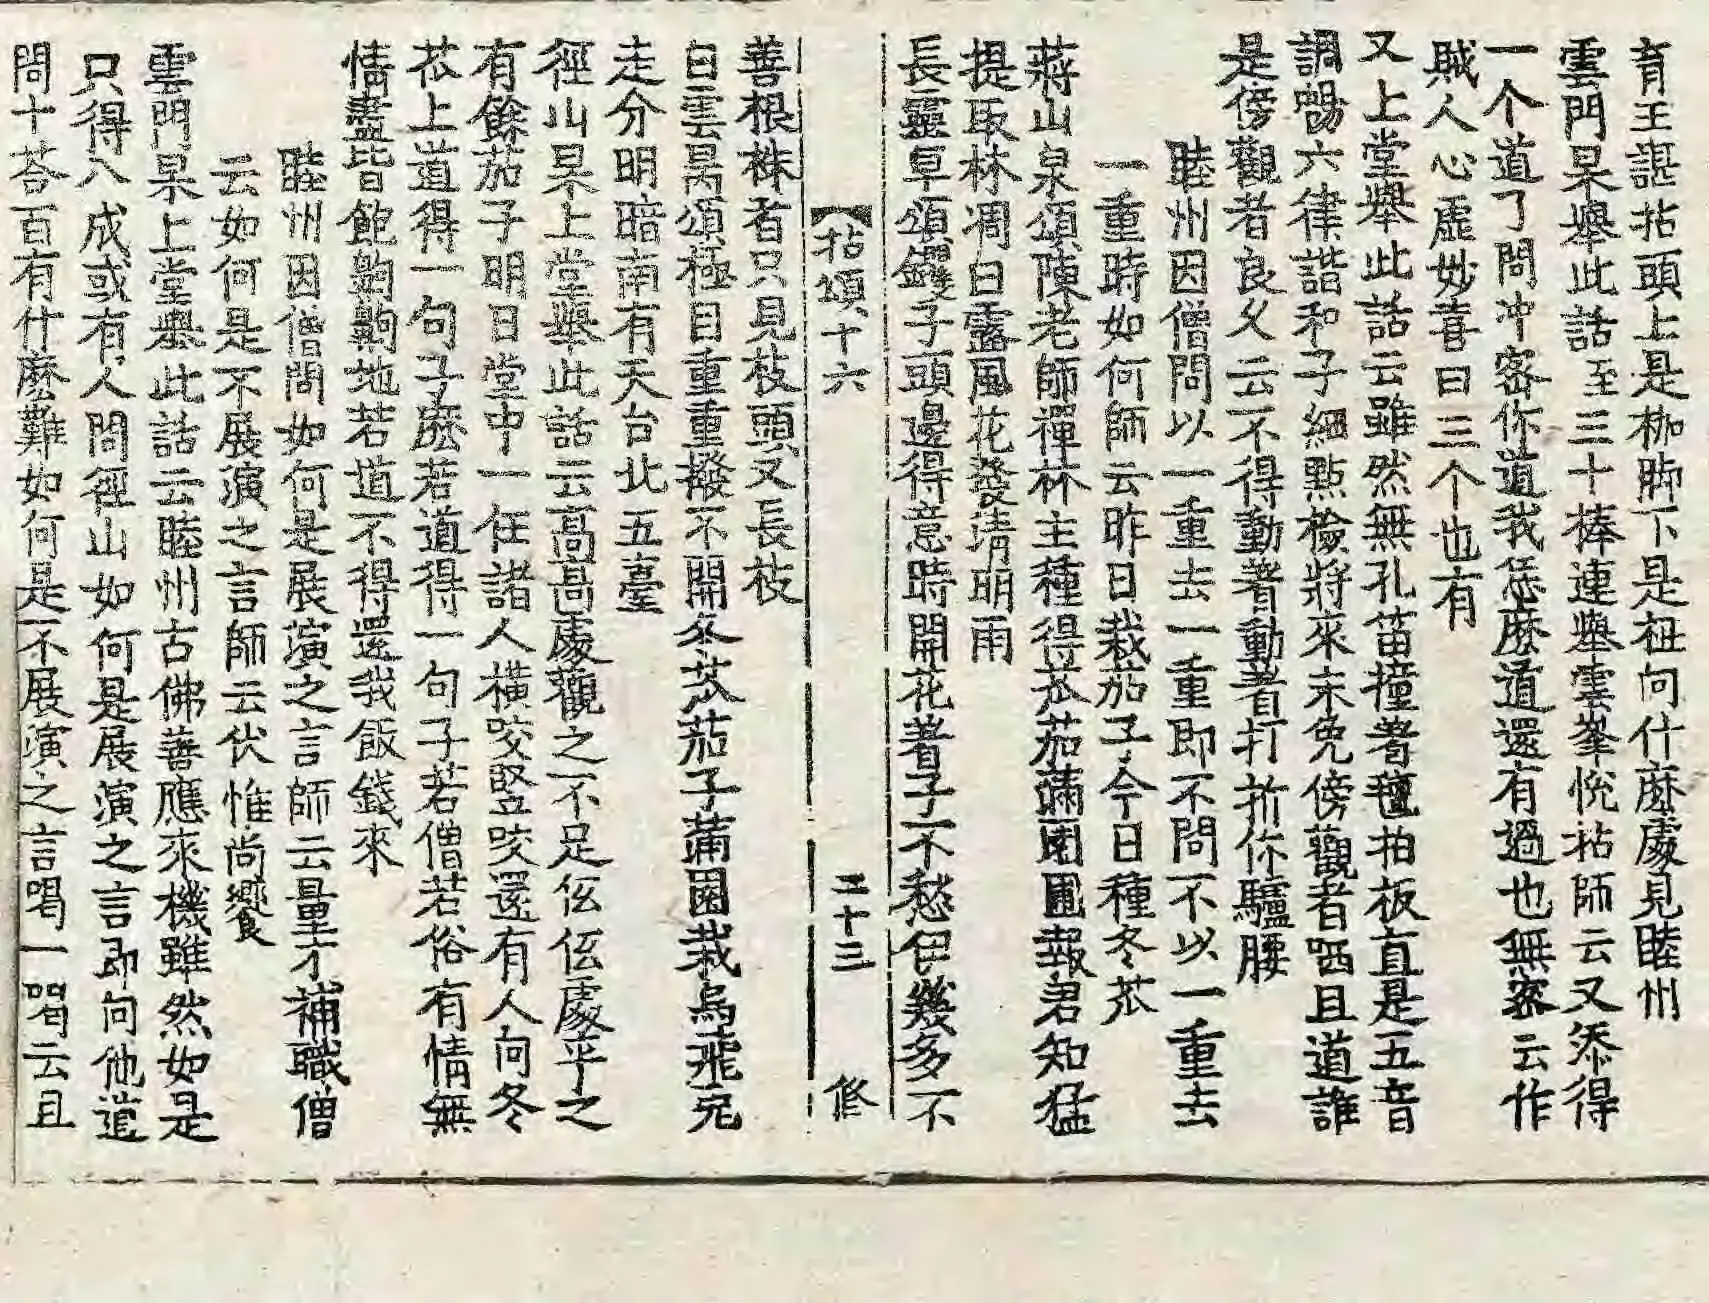 育王諶拈頭上是枷脚下是杻向什麽處見睦州
雲門杲舉此話至三十棒連舉雲峯悅拈師云又添得
一个道了問冲密你道我恁麽道還有過也無密云作
賊人心虛妙喜曰三个也有
又上堂舉此話云雖然無孔笛撞著氊拍板直是五音
調暢六律諧和子細點檢將來未免傍觀者哂且道誰
是傍觀者良久云不得動著動著打折你驢腰
睦州因僧問以一重去一重即不問不以一重去
一重時如何師云昨日栽茄子今日種冬苽
蔣山泉頌陳老師禪林主種得苽茄滿園圃報君知猛
提取林凋白露風花發清明雨
長靈卓頌钁子頭邊得意時開花著子不愁伊幾多不
【拈頌十六 二十三 修
善根株者只見枝頭又長枝
白雲昺頌極目重重撥不開冬苽茄子蒲圈栽烏飛宛
走分明暗南有天台北五臺
徑山杲上堂舉此話云高高處觀之不足伭伭處平之
有餘茄子明日堂中一任諸人橫咬竪咬還有人向冬
苽上道得一句子麽若道得一句子若僧若俗有情無
情盡皆飽齁齁地若道不得還我飯錢來
睦州因僧問如何是展演之言師云量才補職僧
云如何是不展演之言師云伏惟尚饗
雲門杲上堂舉此話云睦州古佛善應來機雖然如是
只得八成或有人問徑山如何是展演之言即向他道
問十荅百有什麽難如何是不展演之言喝一喝云且